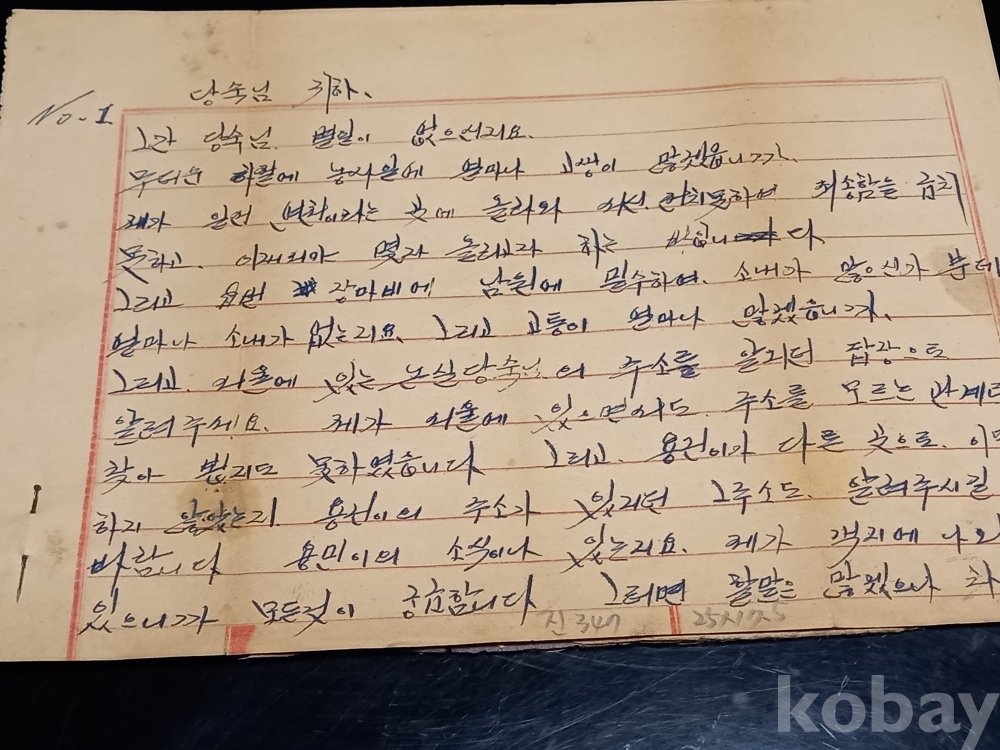 No-1
당숙님 귀하.
그간 당숙님. 별일이 없으신지요.
무더운 하팔에 농사일에 얼마나 고생이 많겠읍니까.
제가 일편 이라는 곳에 올라와 서신. 못하여 죄송함을 금치
못하고. 몇자 올리고자 하는 다
그리고 금번 장마비에 남원에 소내가 많으신가 본데
얼마나 소내가 없는리요. 그리고 고통이 얼마나 많겠읍니까.
그리고. 서울에 있는 논실당숙님의 주소를 알리던 답장으로
알려주세요. 제가 서울에 있으면서도. 주소를 모르는 관계로
찾아 뵙지도 못하였습니다 그리고. 용건이가 다른 곳으로. 이
하지 않았는지. 용건이의 주소가 있지던 그주소도. 알려주시길
바람니다 용민이의 소식이나 있는리요. 제가 객지에 나와
있으니까 모든것이 궁금함니다 그러면 할말은 많겠으나
진347 25x17.5
kobay